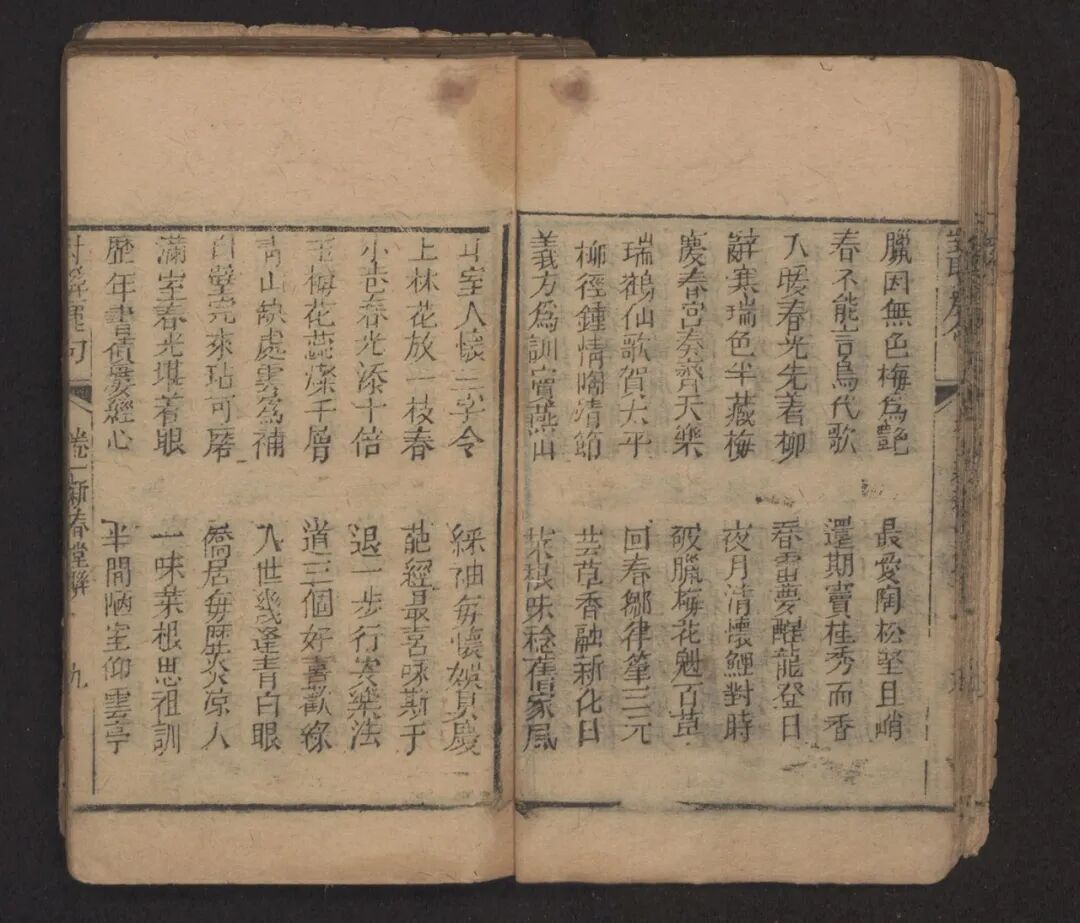 臘因無色梅為艷 最愛陶松堅且峭
春不能言鳥代歌 還期竇桂秀而香
入暖春光先着柳 春雷夢醒龍登日
辭寒瑞色半藏梅 夜月清懷鯉對時
慶春宮奏齊天樂 破臘梅花魁百草
瑞鶴仙歌賀太平 回春鄒律筆三元
柳徑鍾情陶靖節 芸草香融新化日
義方為訓竇燕山 菜根味稔舊家風
斗室人懷三字令 綵袖每懷娛具慶
上林花放一枝春 葩經最喜咏斯干
小巷春光添十倍 退一步行安樂法
玉梅花蕊深千層 道三個好喜歡緣
青山缺處雲為補 入世幾逢青白眼
白璧完來玷可磨 僑居每歷炎涼人
滿室春光堪着眼 一味菜根思祖訓
歷年書債要經心 半間陋室仰雲亭
麗句 卷一新春堂聯 九